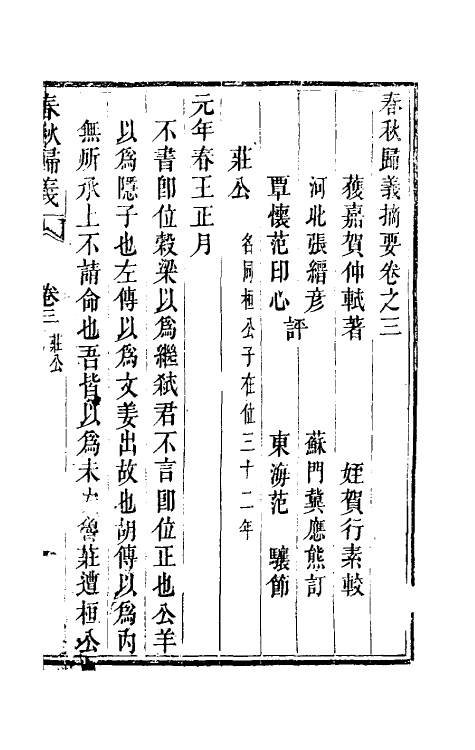 春秋歸義摘要卷之三
獲嘉賀仲軾著　姪賀行素較
河北張縉彦　蘇門冀應熊訂
評
覃懷范印心　東海范　驤節
莊公　名同桓公子在位三十二年
元年春王正月
不書卽位榖梁以為繼弑君不言卽位正也公羊
以為隱子也左傳以為文姜出故也胡傳以為內
無所承上不請命也吾皆以為未　魯莊遭桓公
春秋歸義　卷三　莊公　一